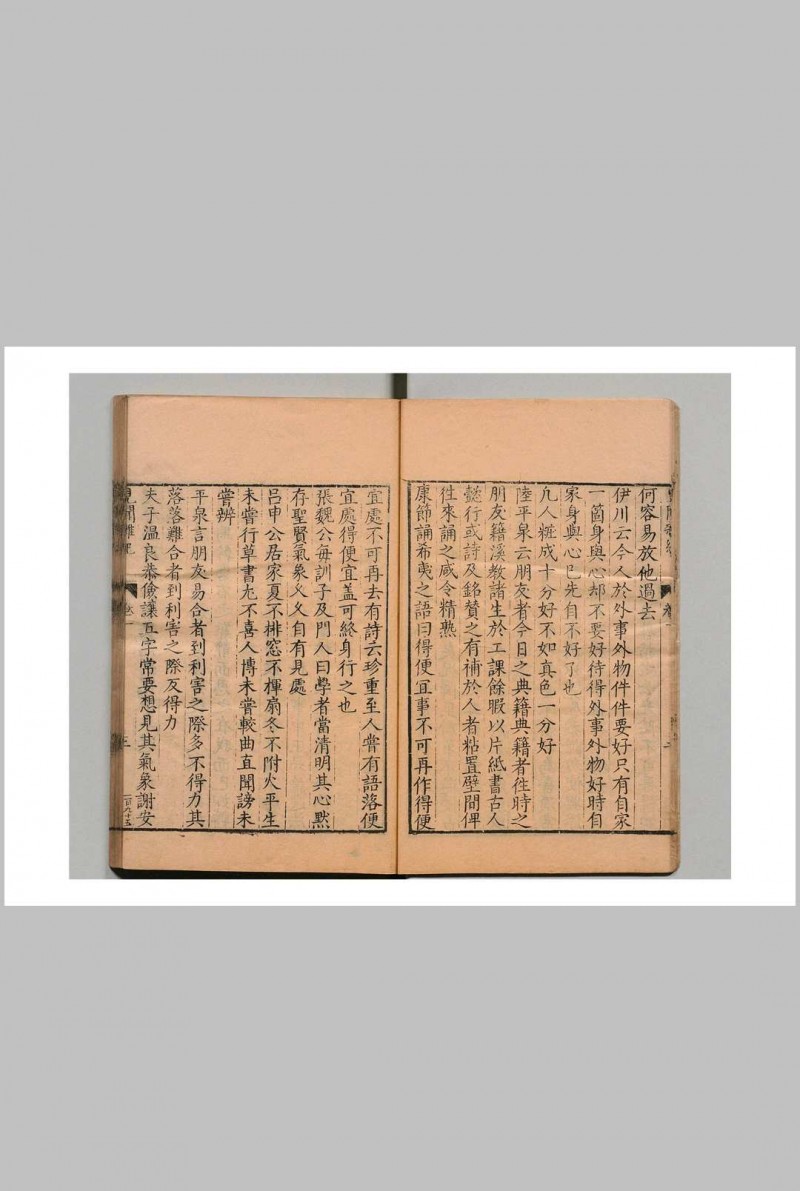 何容易放他過去
伊川云今人於外事外物件件要好只有自家
一箇身與心却不要好待得外事外物好時自
家身與心已先自不好了也
凡人粧成十分好不如真色一分好
陸平泉云朋友者今日之典籍典籍者徃時之
朋友籍溪教諸生於工課餘暇以片紙書古人
懿行或詩及銘贊之有補於人者粘置壁間俾
徃來誦之咸令精熟
康節誦希夷之語曰得便宜事不可再作得便
宜處不可再去有詩云珍重至人嘗有語落便
宜處得便宜盖可終身行之也
張魏公每訓子及門人曰學者當清明其心默
存聖賢氣象乆乆自有見處
吕申公居家夏不排窓不揮扇冬不附火平生
未嘗行草書尤不喜人博未嘗較曲直聞謗未
嘗辨
平泉言朋友易合者到利害之際多不得力其
落落難合者到利害之際反得力
夫子温良恭儉讓五字常要想見其氣象謝安
見聞雜紀
卷一
三
一百九十五